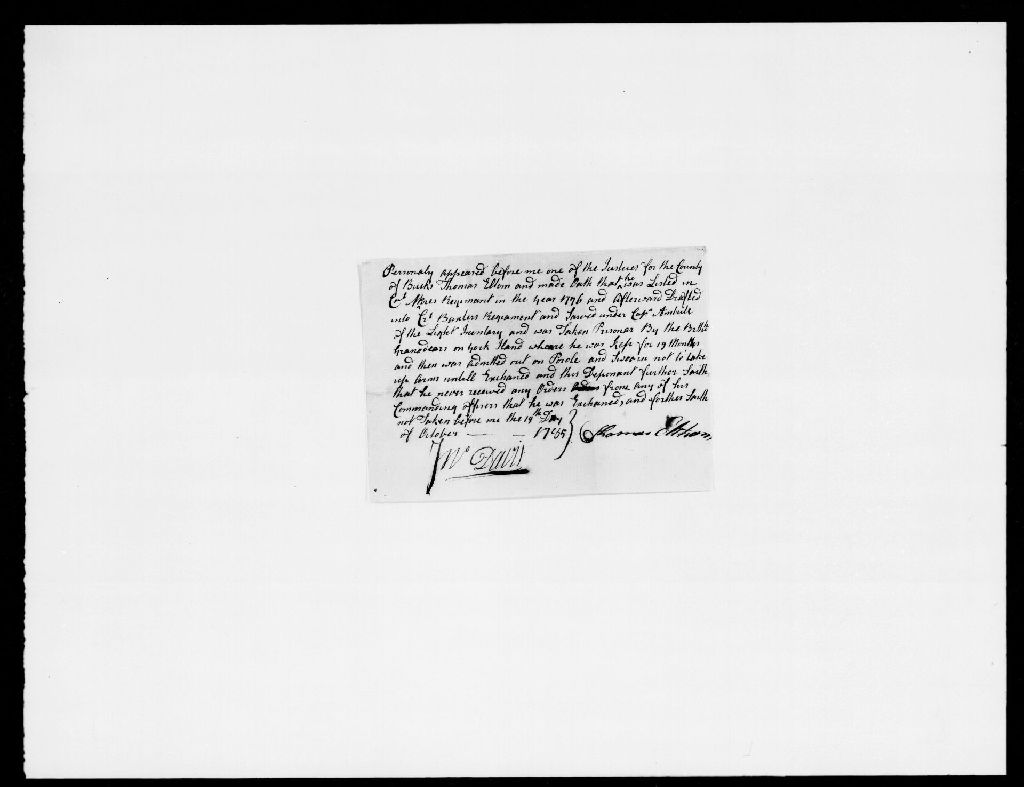 Personaly appeared before me one of the Justices for the County
of Bucks Thomas Eltom and made Oath that he was Listed in
Regimant in the year 1776 and Afterward Drafted
into Cɼˡ Baxters Regament and Sarved under Capᵗ
of the Light Infentary and was Taken Prisonar By the
Granodears on york Iland wheare he was Kept for 19 Months
and then was admitted out on Parole and Swearn not to take
up Arms untill Exchaned and this Deponant further Saith
that he never received any Orders from any of his
Commanding officers that he was Exchaned, and forther Saith
not Taken before me the 19ᵗʰ Day
of October — — 1785 } Thomas
Wᵐ Davis